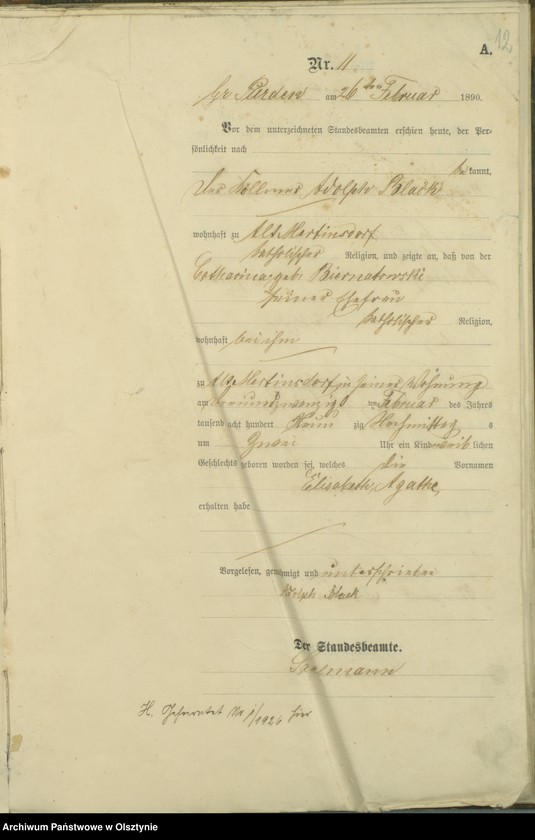 12
A.
Nr. 11
Gr Purden am 26 ten Februar 1890.
Vor dem unterzeichneten Standesbeamten erschien heute, der Per-
sönlichkeit nach
be kannt,
Adolph Black
wohnhaft zu Alt Martinsdorf
katholischer Religion, und zeigte an, daß von der
Catharina geb. Biernatowski
seiner Ehefrau
katholischer Religion,
wohnhaft bei ihm
zu Alt Martinsdorf in seiner Wohnung
am Februar des Jahres
tausend acht hundert Neun zig Nachmittag s
um Zwei Uhr ein Kind weib lichen
Geschlechts geboren worden sei, welches die Vornamen
Elisabeth, Agathe
erhalten habe
Vorgelesen, genehmigt und unterschrieben
Adolph Black
Der Standesbeamte.
H. 1/1926 hier
Archiwum Państwowe w Olsztynie